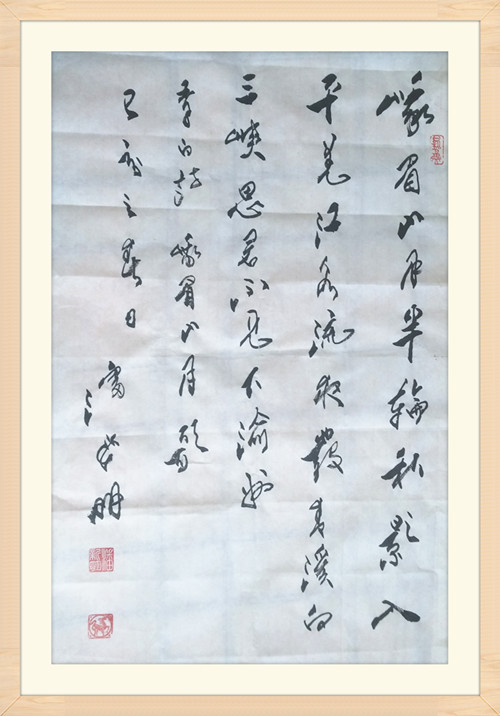 峨眉山月半輪秋影入
平羌江水流夜發清溪向
三峽思君不見下渝州
李白詩峨眉山月歌
己亥之春日
明